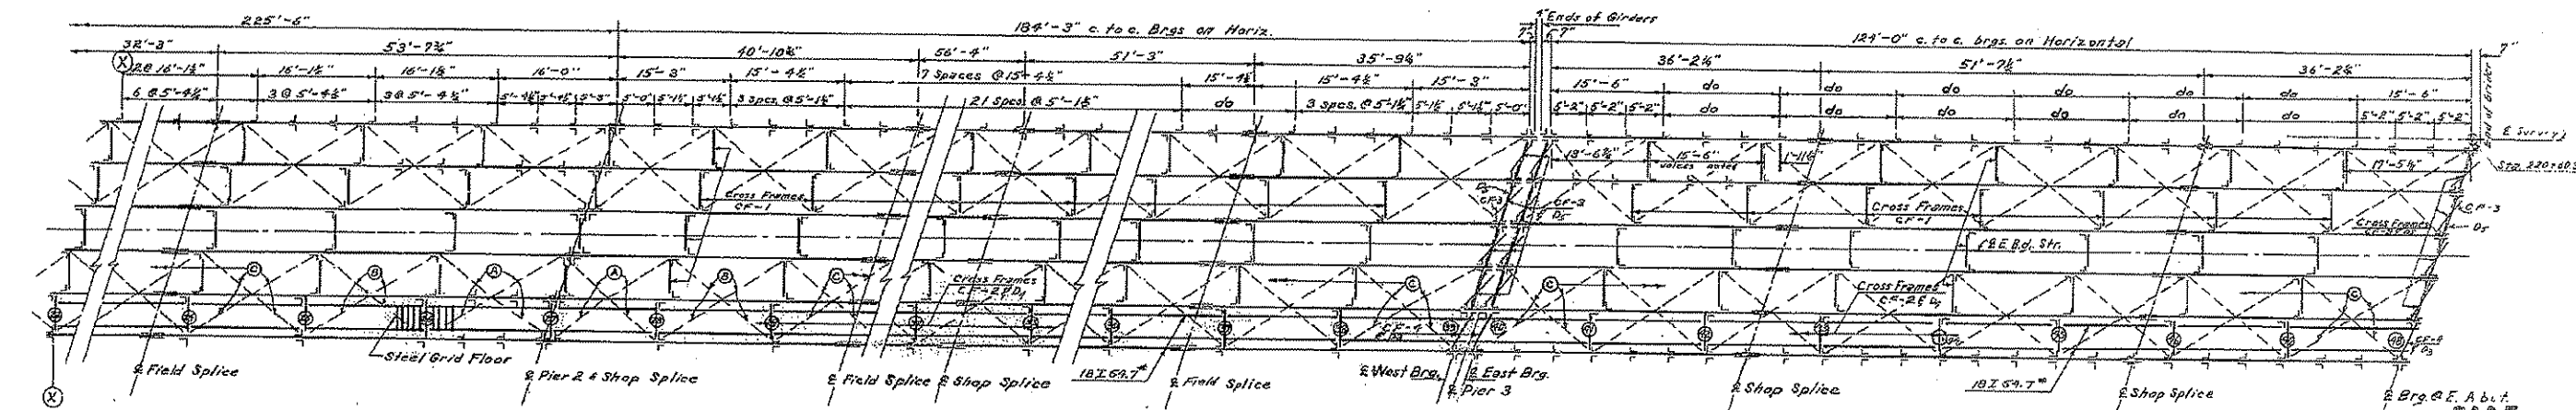 225'-6"
184'-3" c. to c. Brgs on Horiz.
4" Ends of Girders
7" 7"
124'-0" c. to c. brgs. on Horizontal
7"
32'-3"
53'-7¾"
56'-4"
51'-3"
35'-9¾"
36'-2¼"
51'-7½"
36'-2¼"
X
2@ 16'-1½"
16'-1½"
16'-1½"
16'-0"
15'-3"
15'-4½"
7 Spaces @ 15'-4½"
15'-4½"
15'-4½"
15'-3"
15'-6"
do do do do do do
15'-6"
6 @ 5'-4½"
3 @ 5'-4½"
3 @ 5'-4½"
5'-4½" 5'-4½" 5'-3"
5'-0" 5'-1½" 5'-1½"
3 spcs. @ 5'-1½"
21 spcs. @ 5'-1½"
do
3 spcs. @ 5'-1½"
5'-1½" 5'-1½" 5'-0"
5'-2" 5'-2" 5'-2"
do do do do do do
5'-2" 5'-2" 5'-2"
End of Girder
15'-6"
unless noted
17'-5¼"
Cross Frames
CF-1
CF-3
D5
Cross Frames
CF-1
Cross Frames
CF-3
D5
℄ E. Bd. Str.
C B A A B C C C C
Cross Frames
CF-2 & D1
Cross Frames
CF-2 & D1
CF-4
D3
Steel Grid Floor
18 I 54.7#
18 I 54.7#
X
℄ Field Splice
℄ Pier 2 & Shop Splice
℄ Field Splice
℄ Shop Splice
℄ Field Splice
℄ West Brg.
℄ East Brg.
℄ Pier 3
℄ Shop Splice
℄ Shop Splice
℄ Brg. @ E. Abut.